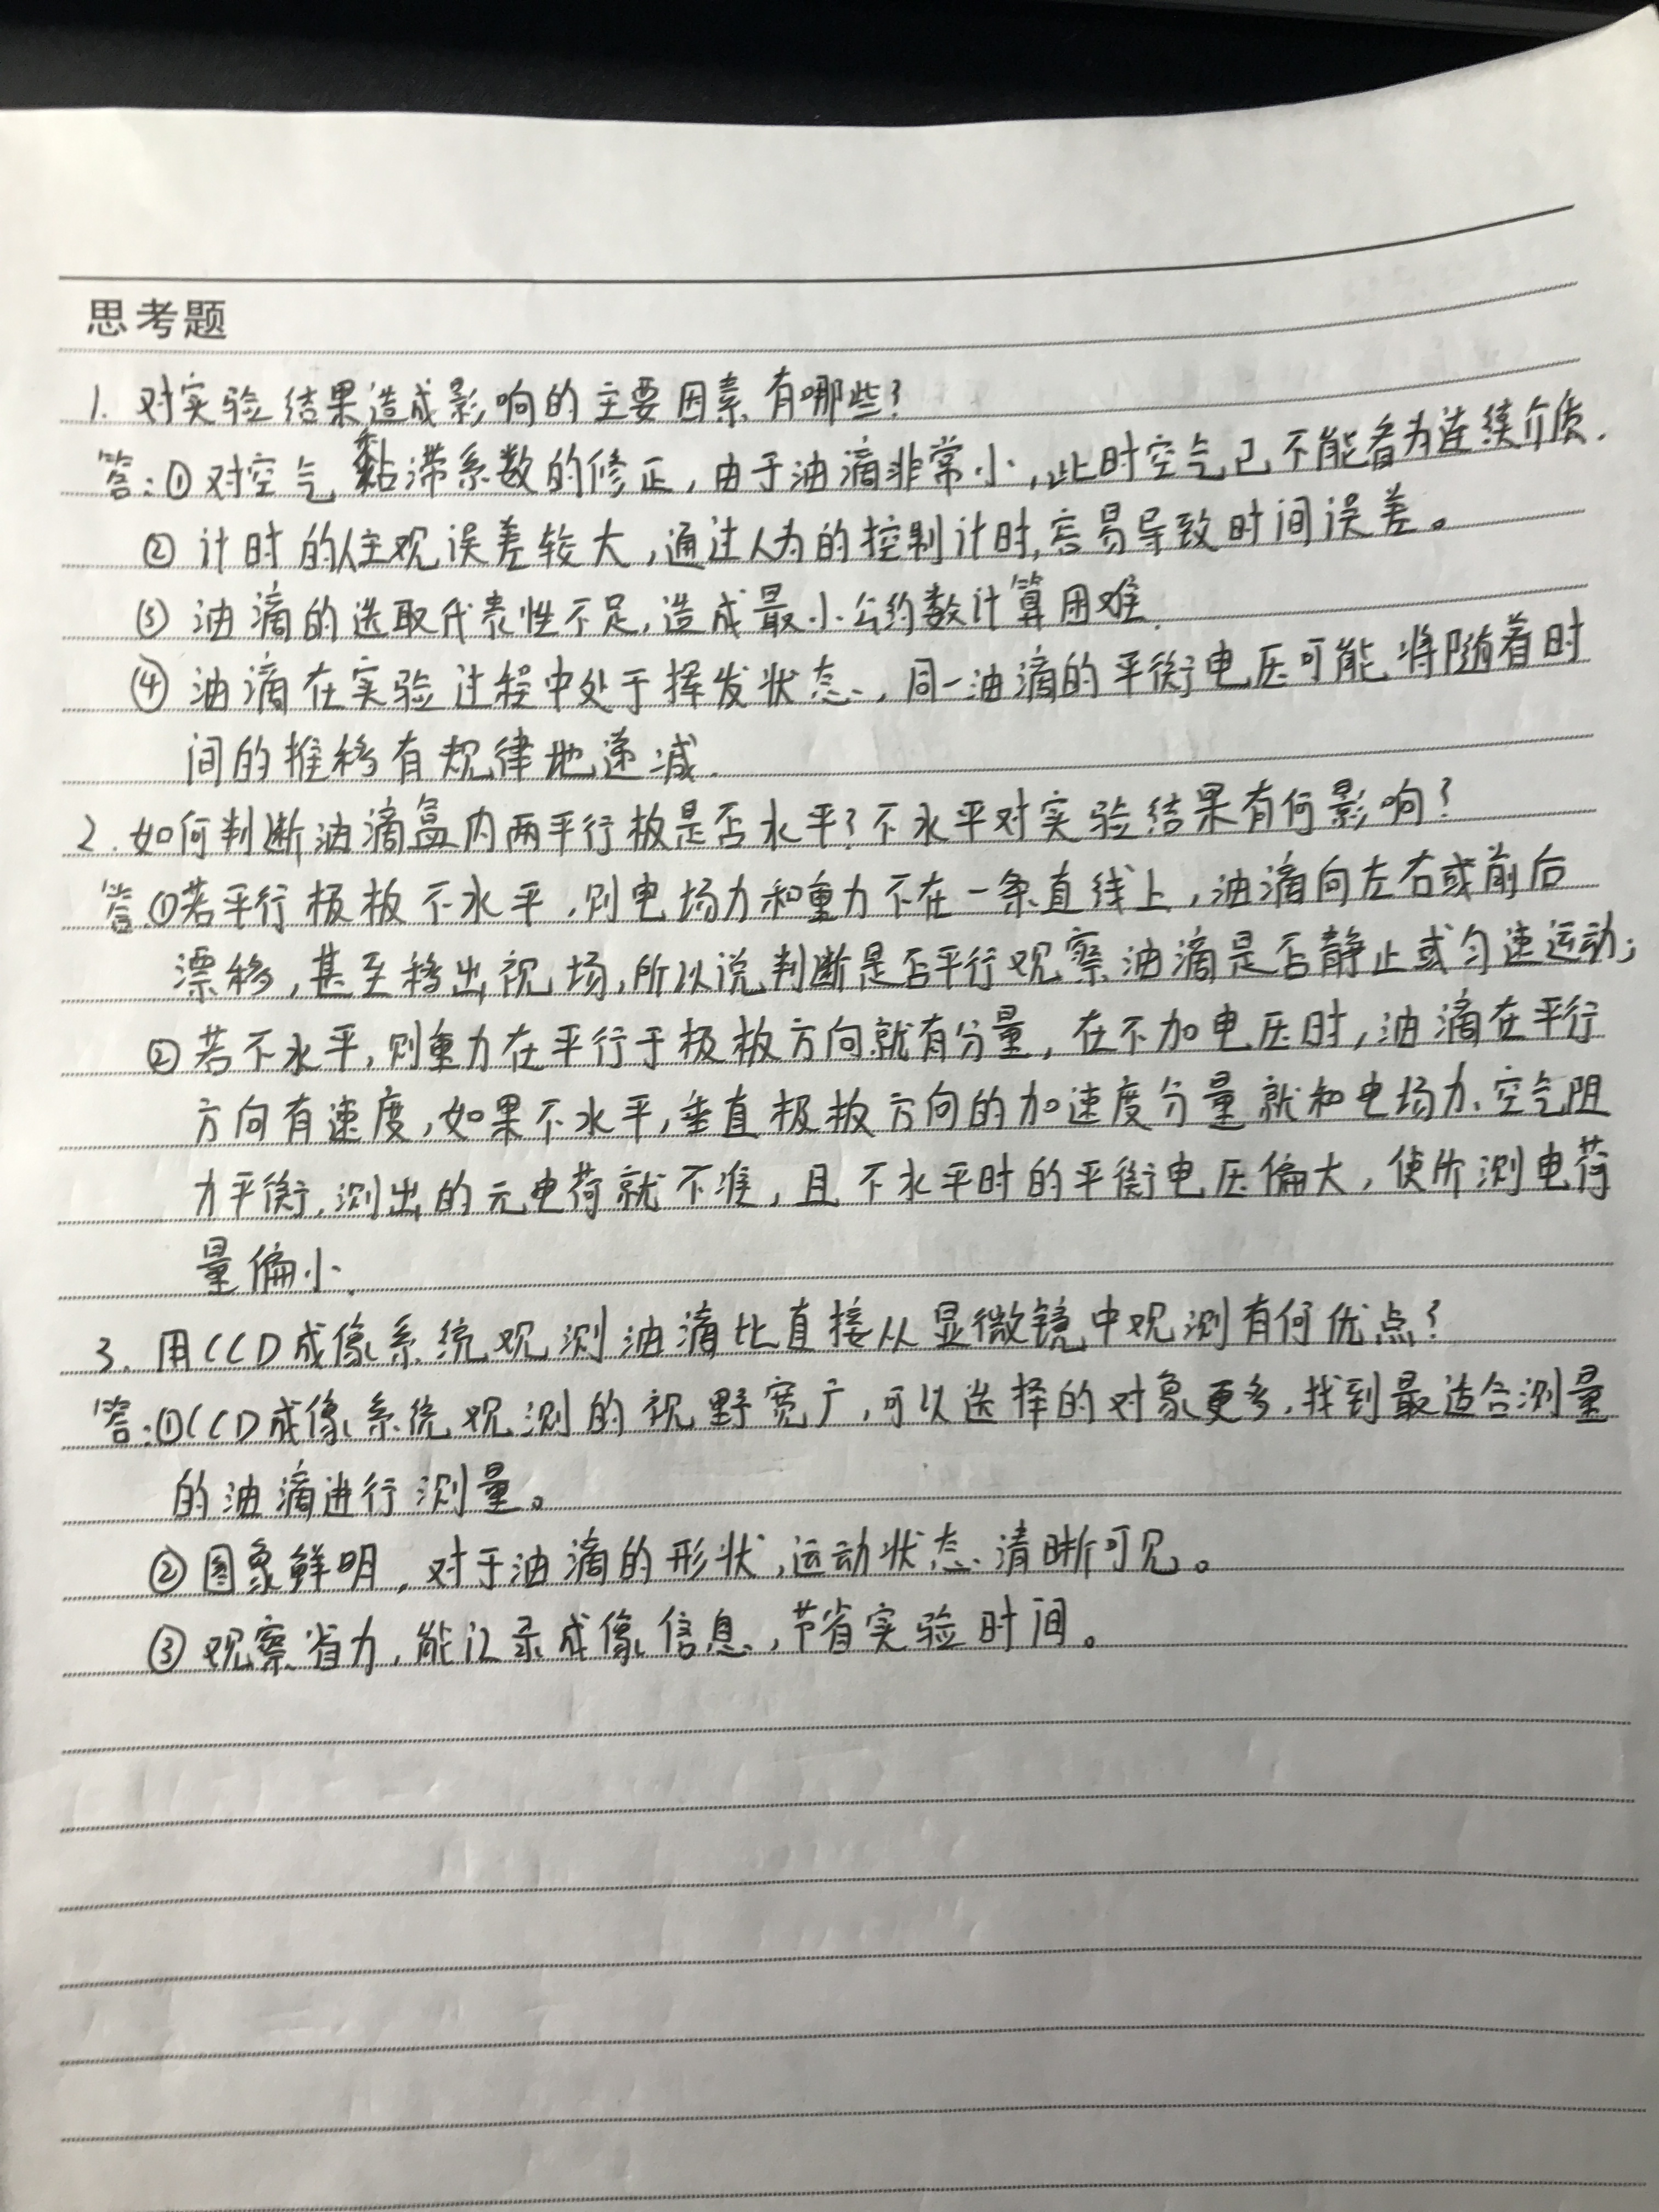 思考题
1. 对实验结果造成影响的主要因素有哪些?
答:①对空气黏滞系数的修正,由于油滴非常小,此时空气已不能看为连续介质.
② 计时的主观误差较大,通过人为的控制计时,容易导致时间误差。
③ 油滴的选取代表性不足,造成最小公约数计算困难.
④ 油滴在实验过程中处于挥发状态,同一油滴的平衡电压可能将随着时
间的推移有规律地递减.
2.如何判断油滴盒内两平行板是否水平?不水平对实验结果有何影响?
答①若平行极板不水平,则电场力和重力不在一条直线上,油滴向左右或前后
漂移,甚至移出视场,所以说判断是否平行观察油滴是否静止或匀速运动;
②若不水平,则重力在平行于极板方向就有分量,在不加电压时,油滴在平行
方向有速度,如果不水平,垂直极板方向的加速度分量就和电场力、空气阻
力平衡,测出的元电荷就不准,且不水平时的平衡电压偏大,使所测电荷
量偏小.
3. 用CCD成像系统观测油滴比直接从显微镜中观测有何优点?
答:①CCD成像系统观测的视野宽广,可以选择的对象更多,找到最适合测量
的油滴进行测量。
②图象鲜明,对于油滴的形状,运动状态清晰可见。
③ 观察省力,能记录成像信息,节省实验时间。